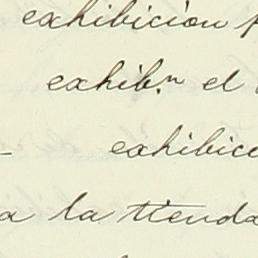 exhibicion
exhib.n el
exhibici
a la tienda